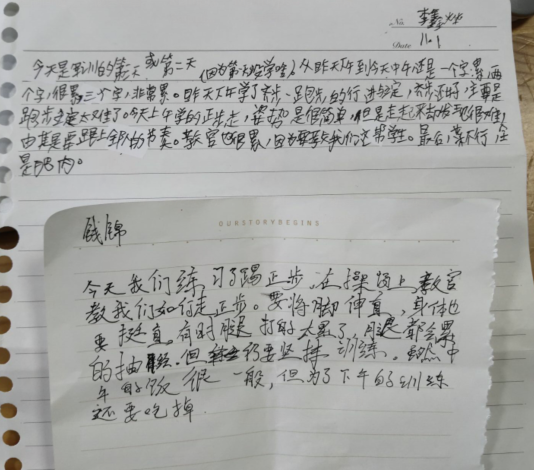 No 李鑫
Date 11.1
今天是军训的第一天或第二天（因为第一天没学啥）从昨天下午到今天中午还是一个字：累，两
个字，很累，三个字，非常累。昨天下午学了齐步、跑步的行进与立定，齐步还好，主要是
跑步实在太难了。今天上午学的正步走，姿势是很简单，但是走起来却发现很难，
尤其是要跟上全队的节奏。教官也很累，因为要教我们这帮学生。最后，菜不行，全
是肥肉。
钱锦
OURSTORYBEGINS
今天我们练习了踢正步。在操场上，教官
教我们如何走正步。要将脚伸直，身体也
要挺直。有时腿打的太累了，腿都会累
的抽筋。但仍要坚持训练。虽然中
午的饭很一般，但为了下午的训练
还要吃掉